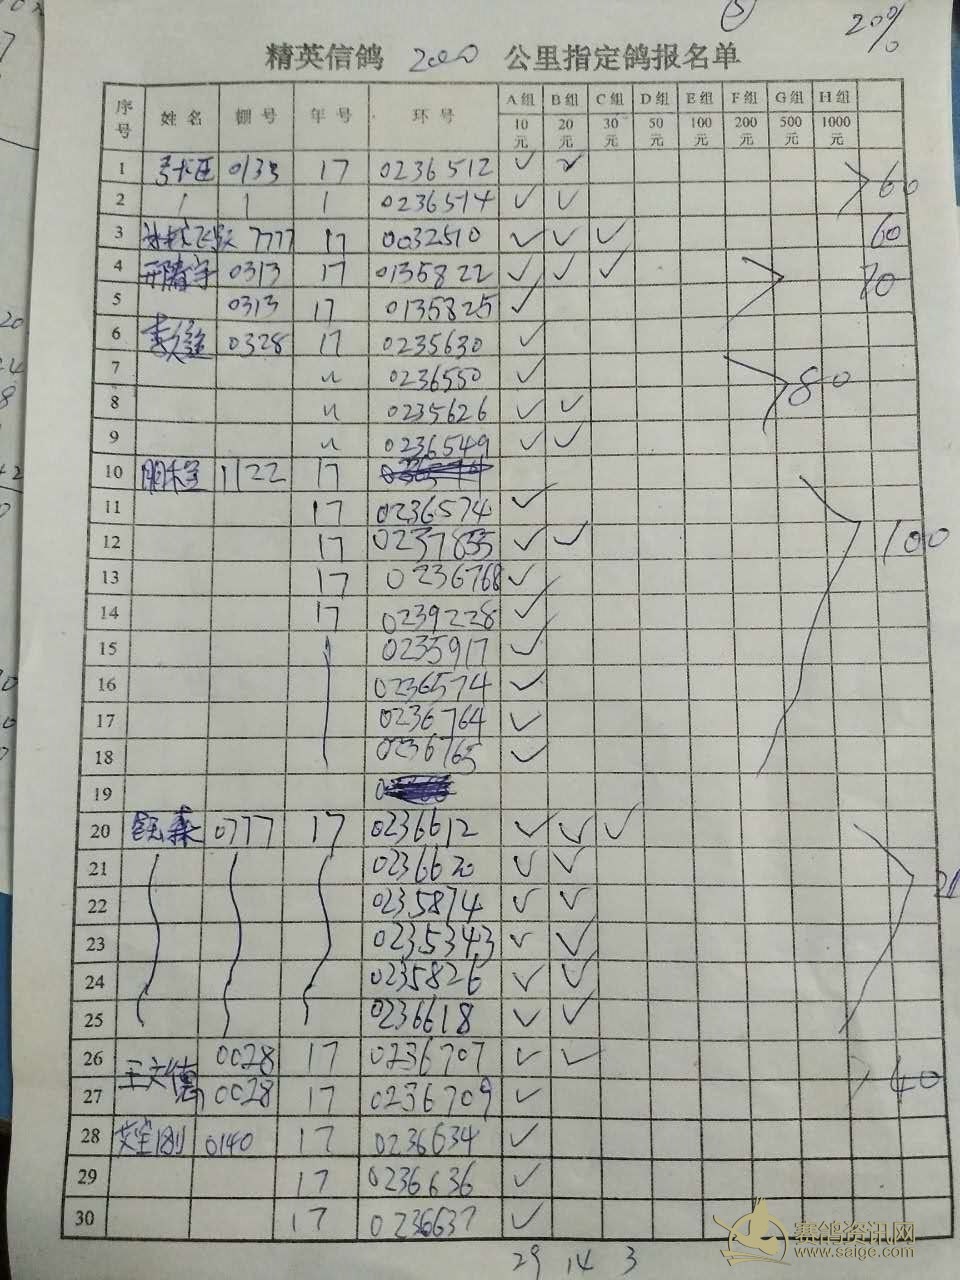 5
20%
精英信鸽 2000 公里指定鸽报名单
序号 姓名 棚号 年号 环号 A组 B组 C组 D组 E组 F组 G组 H组
10元 20元 30元 50元 100元 200元 500元 1000元
1 0133 17 0236512 ✓ ✓
60
2 0236514 ✓ ✓
3 7777 17 0032510 ✓ ✓ ✓ 60
4 0313 17 0135822 ✓ ✓ ✓ 70
5 0313 17 0135825 ✓
6 0328 17 0235630 ✓
7 〃 0236550 ✓ 80
8 〃 0235626 ✓ ✓
9 〃 0236549 ✓ ✓
10 1122 17
11 17 0236574 ✓
12 17 0237855 ✓ ✓ 100
13 17 0236768 ✓
14 17 0239228 ✓
15 0235917 ✓
16 0236574 ✓
17 0236764 ✓
18 0236765 ✓
19
20 0777 17 0236612 ✓ ✓ ✓
21 0236620 ✓ ✓
22 0235874 ✓ ✓
23 0235343 ✓ ✓
24 0235826 ✓ ✓
25 0236618 ✓ ✓
26 王文德 0028 17 0236707 ✓ ✓
40
27 0028 17 0236709 ✓
28 0140 17 0236634 ✓
29 17 0236636 ✓
30 17 0236637 ✓
29 14 3
赛鸽资讯网
www.saige.com